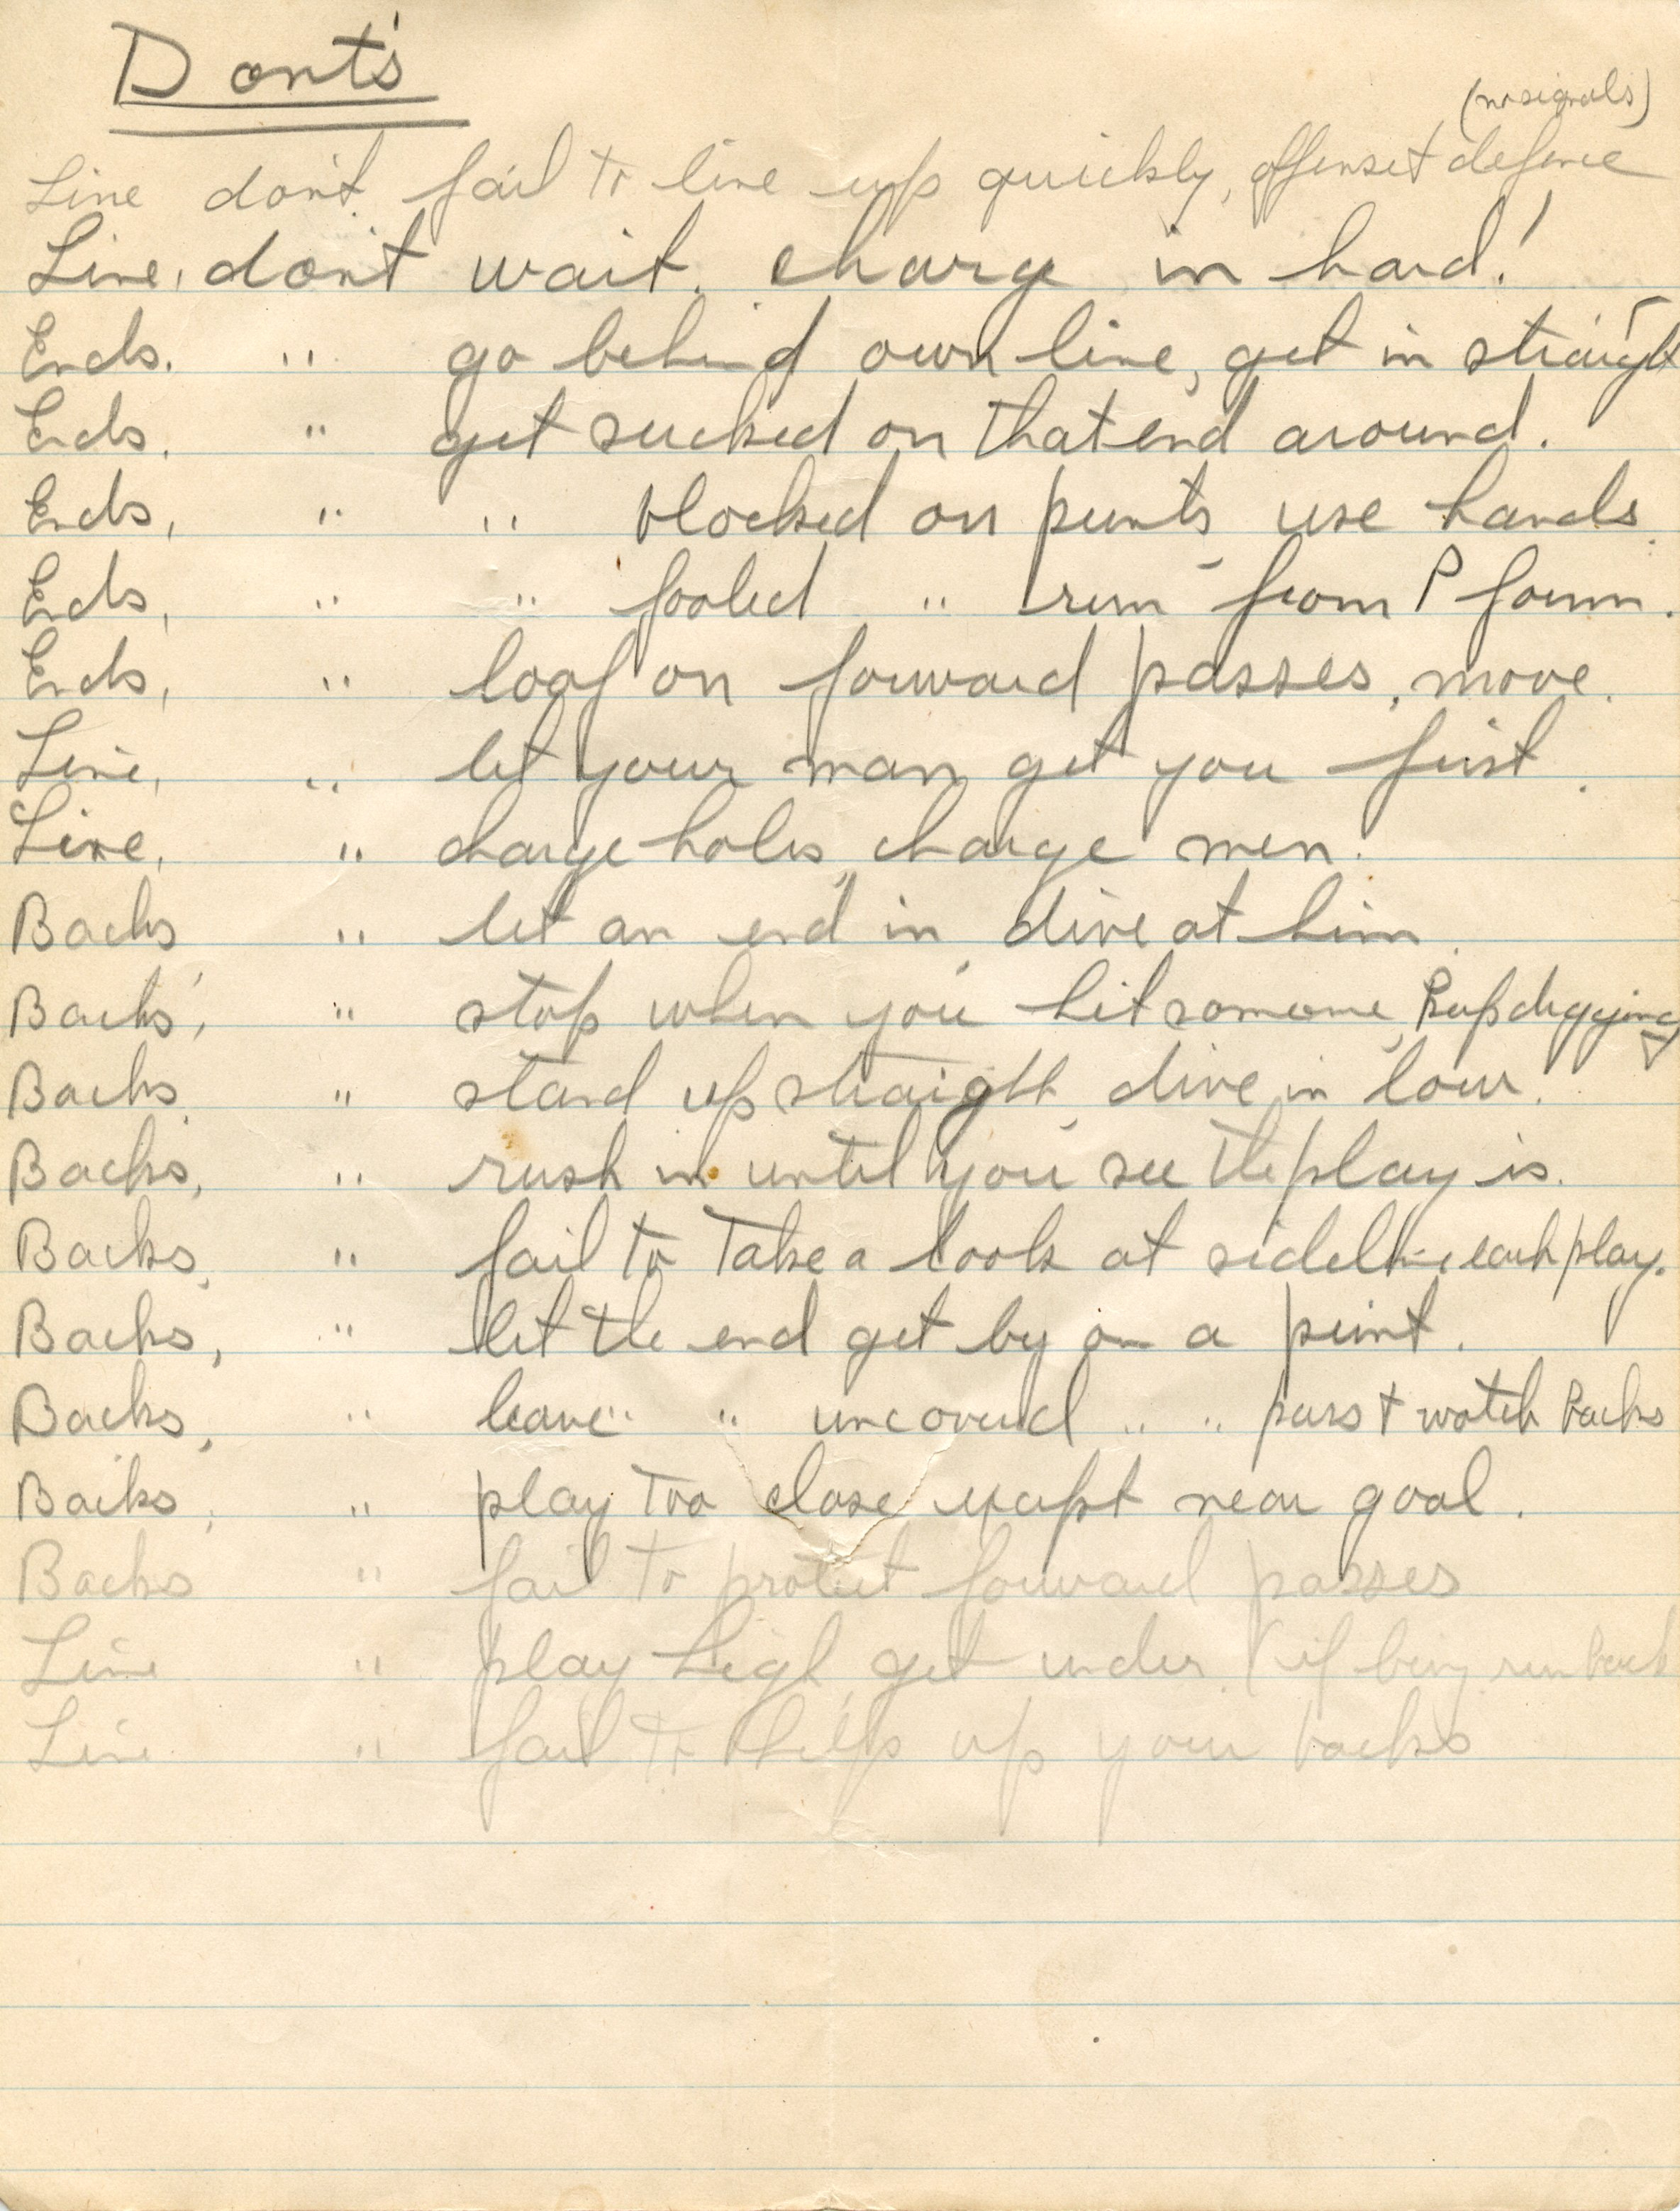 Dont's
(no signals)
Line don't fail to line up quickly, offense + defence
Line, don't wait. charge in hard!
Ends. " go behind own line, get in straight
Ends, " get sucked on that end around.
Ends, " " blocked on punts use hands.
Ends, " " fooled " run from P form.
Ends, " loaf on forward passes, move.
Line, " let your man get you first.
Line, " charge holes, charge men.
Backs " let an end in, dive at him.
Backs, " stop when you hit someone, keep digging
Backs, " stand up straight, dive in low.
Backs, " rush in until you see the play is.
Backs, " fail to take a look at sideline each play.
Backs, " let the end get by on a punt.
Backs, " leave " " uncovered " " pass + watch backs
Backs, " play too close except near goal.
Backs " fail to protect forward passes
Line " play high, get under (if being run back
Line " fail to help up your backs